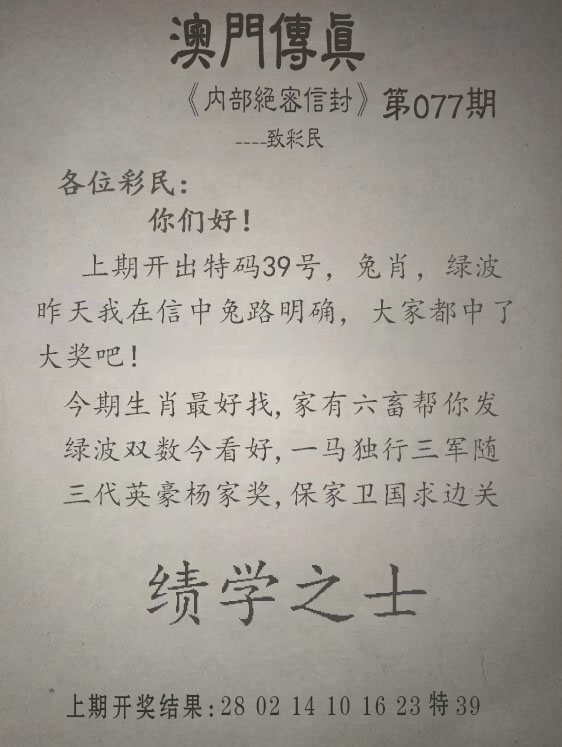 澳門傳眞
《内部絕密信封》第077期
----致彩民
各位彩民：
你们好！
上期开出特码39号，兔肖，绿波
昨天我在信中兔路明确，大家都中了
大奖吧！
今期生肖最好找,家有六畜帮你发
绿波双数今看好,一马独行三军随
三代英豪杨家奖,保家卫国求边关
绩学之士
上期开奖结果:28 02 14 10 16 23 特 39